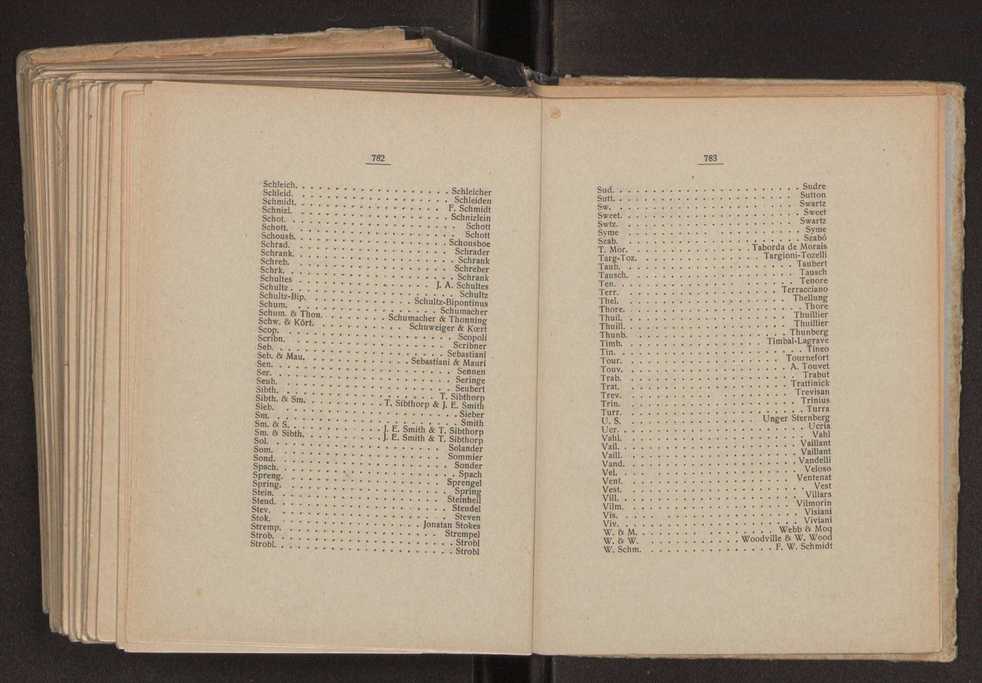 782
Schleich. . . . . . . . . . . . . . . . . . . . Schleicher
Schleid. . . . . . . . . . . . . . . . . . . . Schleiden
Schmidt. . . . . . . . . . . . . . . . . . . . F. Schmidt
Schnizl. . . . . . . . . . . . . . . . . . . . Schnizlein
Schot. . . . . . . . . . . . . . . . . . . . Schott
Schott. . . . . . . . . . . . . . . . . . . . Schott
Schousb. . . . . . . . . . . . . . . . . . . . Schousboe
Schrad. . . . . . . . . . . . . . . . . . . . Schrader
Schrank. . . . . . . . . . . . . . . . . . . . Schrank
Schreb. . . . . . . . . . . . . . . . . . . . Schreber
Schrk. . . . . . . . . . . . . . . . . . . . Schrank
Schultes . . . . . . . . . . . . . . . . . . . . J. A. Schultes
Schultz . . . . . . . . . . . . . . . . . . . . Schultz
Schultz-Bip. . . . . . . . . . . . . . . . . . . . Schultz-Bipontinus
Schum. . . . . . . . . . . . . . . . . . . . Schumacher
Schum. & Thon. . . . . . . . . . . . . . . . Schumacher & Thonning
Schw. & Kört. . . . . . . . . . . . . . . . Schuweiger & Kœrt
Scop. . . . . . . . . . . . . . . . . . . . Scopoli
Scribn. . . . . . . . . . . . . . . . . . . . Scribner
Seb. . . . . . . . . . . . . . . . . . . . Sebastiani
Seb. & Mau. . . . . . . . . . . . . . . . Sebastiani & Mauri
Sen. . . . . . . . . . . . . . . . . . . . Sennen
Ser. . . . . . . . . . . . . . . . . . . . Seringe
Seub. . . . . . . . . . . . . . . . . . . . Seubert
Sibth. . . . . . . . . . . . . . . . . . . . T. Sibthorp
Sibth. & Sm. . . . . . . . . . . . . . . . T. Sibthorp & J. E. Smith
Sieb. . . . . . . . . . . . . . . . . . . . Sieber
Sm. . . . . . . . . . . . . . . . . . . . Smith
Sm. & S. . . . . . . . . . . . . . . . J. E. Smith & T. Sibthorp
Sm. & Sibth. . . . . . . . . . . . . . . . J. E. Smith & T. Sibthorp
Sol. . . . . . . . . . . . . . . . . . . . Solander
Som. . . . . . . . . . . . . . . . . . . . Sommier
Sond. . . . . . . . . . . . . . . . . . . . Sonder
Spach. . . . . . . . . . . . . . . . . . . . Spach
Spreng. . . . . . . . . . . . . . . . . . . . Sprengel
Spring. . . . . . . . . . . . . . . . . . . . Spring
Stein. . . . . . . . . . . . . . . . . . . . Steinheil
Stend. . . . . . . . . . . . . . . . . . . . Stendel
Stev. . . . . . . . . . . . . . . . . . . . Steven
Stok. . . . . . . . . . . . . . . . . . . . Jonatan Stokes
Stremp. . . . . . . . . . . . . . . . . . . . Strempel
Strob. . . . . . . . . . . . . . . . . . . . Strobl
Strobl. . . . . . . . . . . . . . . . . . . . Strobl
783
Sud. . . . . . . . . . . . . . . . . . . . Sudre
Sutt. . . . . . . . . . . . . . . . . . . . Sutton
Sw. . . . . . . . . . . . . . . . . . . . Swartz
Sweet. . . . . . . . . . . . . . . . . . . . Sweet
Swtz. . . . . . . . . . . . . . . . . . . . Swartz
Syme . . . . . . . . . . . . . . . . . . . . Syme
Szab. . . . . . . . . . . . . . . . . . . . Szabó
T. Mor. . . . . . . . . . . . . . . . Taborda de Morais
Targ-Toz. . . . . . . . . . . . . . . . Targioni-Tozelli
Taub. . . . . . . . . . . . . . . . . . . . Taubert
Tausch. . . . . . . . . . . . . . . . . . . . Tausch
Ten. . . . . . . . . . . . . . . . . . . . Tenore
Terr. . . . . . . . . . . . . . . . . . . . Terracciano
Thel. . . . . . . . . . . . . . . . . . . . Thellung
Thore. . . . . . . . . . . . . . . . . . . . Thore
Thuil. . . . . . . . . . . . . . . . . . . . Thuillier
Thuill. . . . . . . . . . . . . . . . . . . . Thuillier
Thunb. . . . . . . . . . . . . . . . . . . . Thunberg
Timb. . . . . . . . . . . . . . . . . . . . Timbal-Lagrave
Tin. . . . . . . . . . . . . . . . . . . . Tineo
Tour. . . . . . . . . . . . . . . . . . . . Tournefort
Touv. . . . . . . . . . . . . . . . . . . . A. Touvet
Trab. . . . . . . . . . . . . . . . . . . . Trabut
Trat. . . . . . . . . . . . . . . . . . . . Trattinick
Trev. . . . . . . . . . . . . . . . . . . . Trevisan
Trin. . . . . . . . . . . . . . . . . . . . Trinius
Turr. . . . . . . . . . . . . . . . . . . . Turra
U. S. . . . . . . . . . . . . . . . Unger Sternberg
Ucr. . . . . . . . . . . . . . . . . . . . Ucria
Vahl. . . . . . . . . . . . . . . . . . . . Vahl
Vail. . . . . . . . . . . . . . . . . . . . Vaillant
Vaill. . . . . . . . . . . . . . . . . . . . Vaillant
Vand. . . . . . . . . . . . . . . . . . . . Vandelli
Vel. . . . . . . . . . . . . . . . . . . . Veloso
Vent. . . . . . . . . . . . . . . . . . . . Ventenat
Vest. . . . . . . . . . . . . . . . . . . . Vest
Vill. . . . . . . . . . . . . . . . . . . . Villars
Vilm. . . . . . . . . . . . . . . . . . . . Vilmorin
Vis. . . . . . . . . . . . . . . . . . . . Visiani
Viv. . . . . . . . . . . . . . . . . . . . Viviani
W. & M. . . . . . . . . . . . . . . . Webb & Moq
W. & W. . . . . . . . . . . . . Woodville & W. Wood
W. Schm. . . . . . . . . . . . . . . . F. W. Schmidt